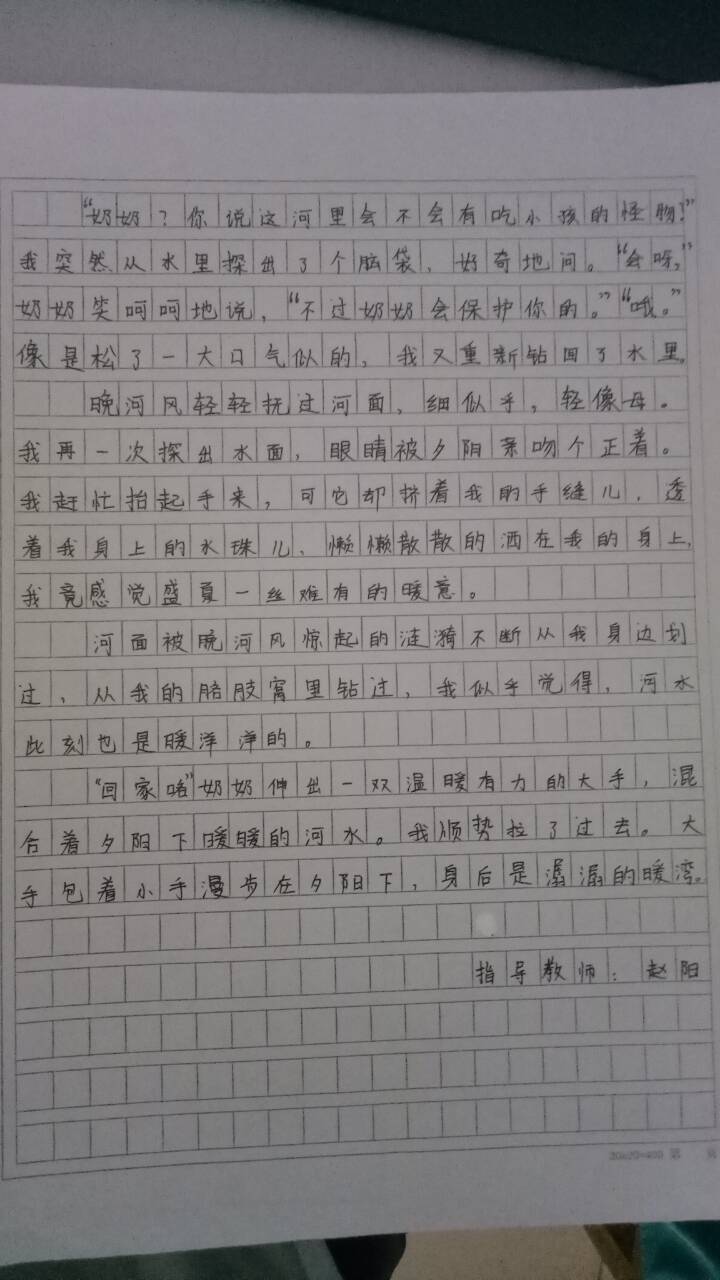 “奶奶？你说这河里会不会有吃小孩的怪物？”
我突然从水里探出了个脑袋，好奇地问。“会呀，”
奶奶笑呵呵地说，“不过奶奶会保护你的。”“哦。”
像是松了一大口气似的，我又重新钻回了水里。
晚河风轻轻抚过河面，细似手，轻像母。
我再一次探出水面，眼睛被夕阳亲吻个正着。
我赶忙抬起手来，可它却挤着我的手缝儿，透
着我身上的水珠儿，懒懒散散的洒在我的身上，
我竟感觉盛夏一丝难有的暖意。
河面被晚河风惊起的涟漪不断从我身边划
过，从我的胳肢窝里钻过，我似乎觉得，河水
此刻也是暖洋洋的。
“回家咯”奶奶伸出一双温暖有力的大手，混
合着夕阳下暖暖的河水。我顺势拉了过去。大
手包着小手漫步在夕阳下，身后是潺潺的暖湾。
指导教师：赵阳
20x20=400 第 页